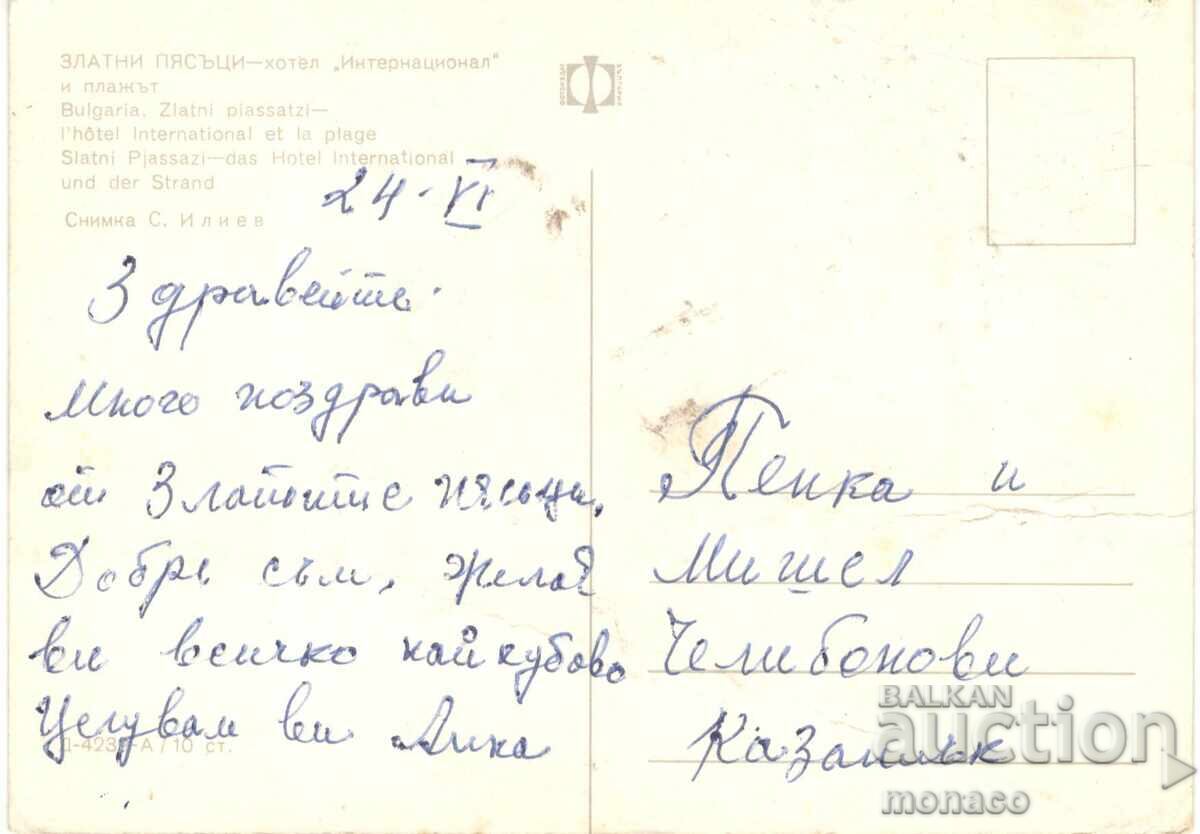 ЗЛАТНИ ПЯСЪЦИ—хотел „Интернационал"
и плажът
Bulgaria. Zlatni piassatzi—
l'hôtel International et la plage
Slatni Pjassazi—das Hotel International
und der Strand
Снимка С. Илиев
24. VI
Здравейте.
Много поздрави
от Златните пясъци.
Добре съм, желая
ви всичко най хубаво
Целувам ви Анка
Д-423-А / 10 ст.
Пенка и
Мишел
Челибонови
Казанлък
BALKAN
auction
monaco